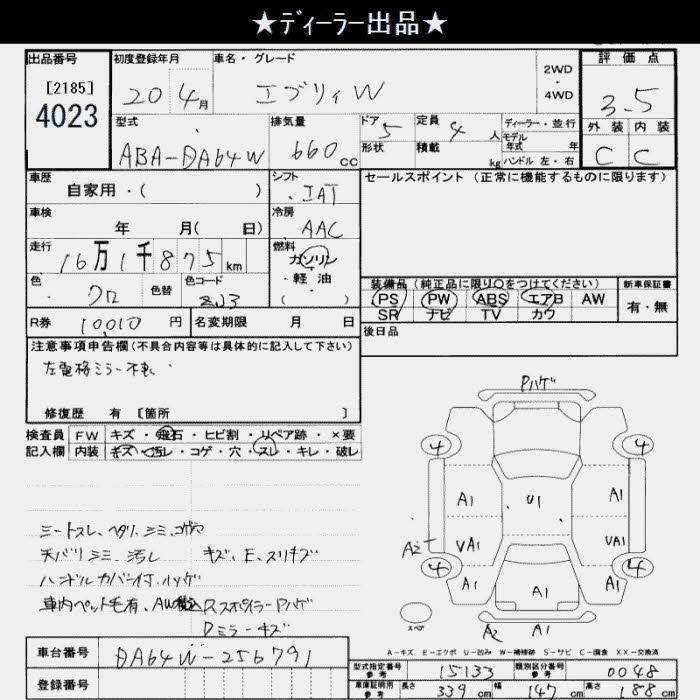 ★ディーラー出品★
出品番号 初度登録年月 車名・グレード 評価点
[2185]
4023
20 4月 エブリィW 2WD・4WD 3.5
型式 排気量 ドア 定員 ディーラー・並行 外装 内装
ABA-DA64W 660cc 5 4人 モデル年式 年 C C
形状 積載 kg ハンドル 左・右
車歴 シフト セールスポイント(正常に機能するものに限ります)
自家用・( ) IAT
車検 冷房
年 月( 日) AAC
走行 燃料
16万1千875km ガソリン・軽油
色 色替 色コード ( ) 装備品(純正品に限り○をつけてください) 新車保証書
クロ ZJ3 PS PW ABS エアB AW 有・無
SR ナビ TV カワ
R券 10010円 名変期限 月 日 後日品
注意事項申告欄(不具合内容等は具体的に記入して下さい)
左電格ミラー不良
修復歴 有 [箇所 ]
検査員 FW キズ・飛石・ヒビ割・リペア跡・×要
記入欄 内装 キズ・汚レ・コゲ・穴・スレ・キレ・破レ
Pハゲ
4 4
A1 U1 A1
A2 VA1 UA1
4 4
A1 A1 A1
A2 A1
シートスレ、ヘタリ、シミ、コゲ穴
天バリシミ、汚レ キズ、E、スリキズ
ハンドルカバー付、ハゲ
車内ペット毛有、AW Rスポイラー Pハゲ
Dミラーキズ
A-キズ E-エクボ U-凹み W-補修跡 S-サビ C-腐食 XX-交換済
車台番号 DA64W-256791
登録番号
型式指定番号 参考 15133 類別区分番号 参考 0048
車庫証明用 参考 長さ 339cm 幅 147cm 高さ 188cm